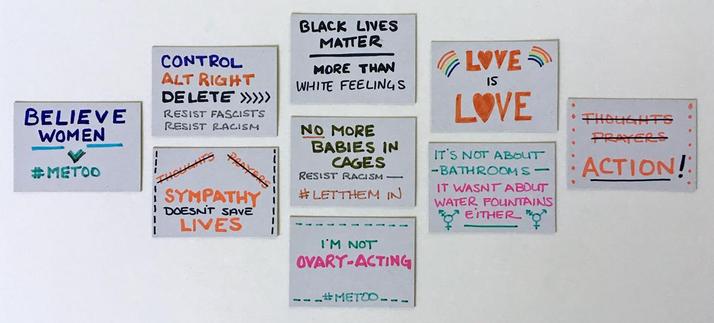 BELIEVE
WOMEN
#METOO
CONTROL
ALT RIGHT
DELETE >>>>>
RESIST FASCISTS
RESIST RACISM
THOUGHTS PRAYERS
SYMPATHY
DOESN'T SAVE
LIVES
BLACK LIVES
MATTER
MORE THAN
WHITE FEELINGS
NO MORE
BABIES IN
CAGES
RESIST RACISM —
#LETTHEM IN
I'M NOT
OVARY-ACTING
#METOO
LOVE
IS
LOVE
IT'S NOT ABOUT
-BATHROOMS-
IT WASNT ABOUT
WATER FOUNTAINS
EITHER
THOUGHTS
PRAYERS
ACTION!